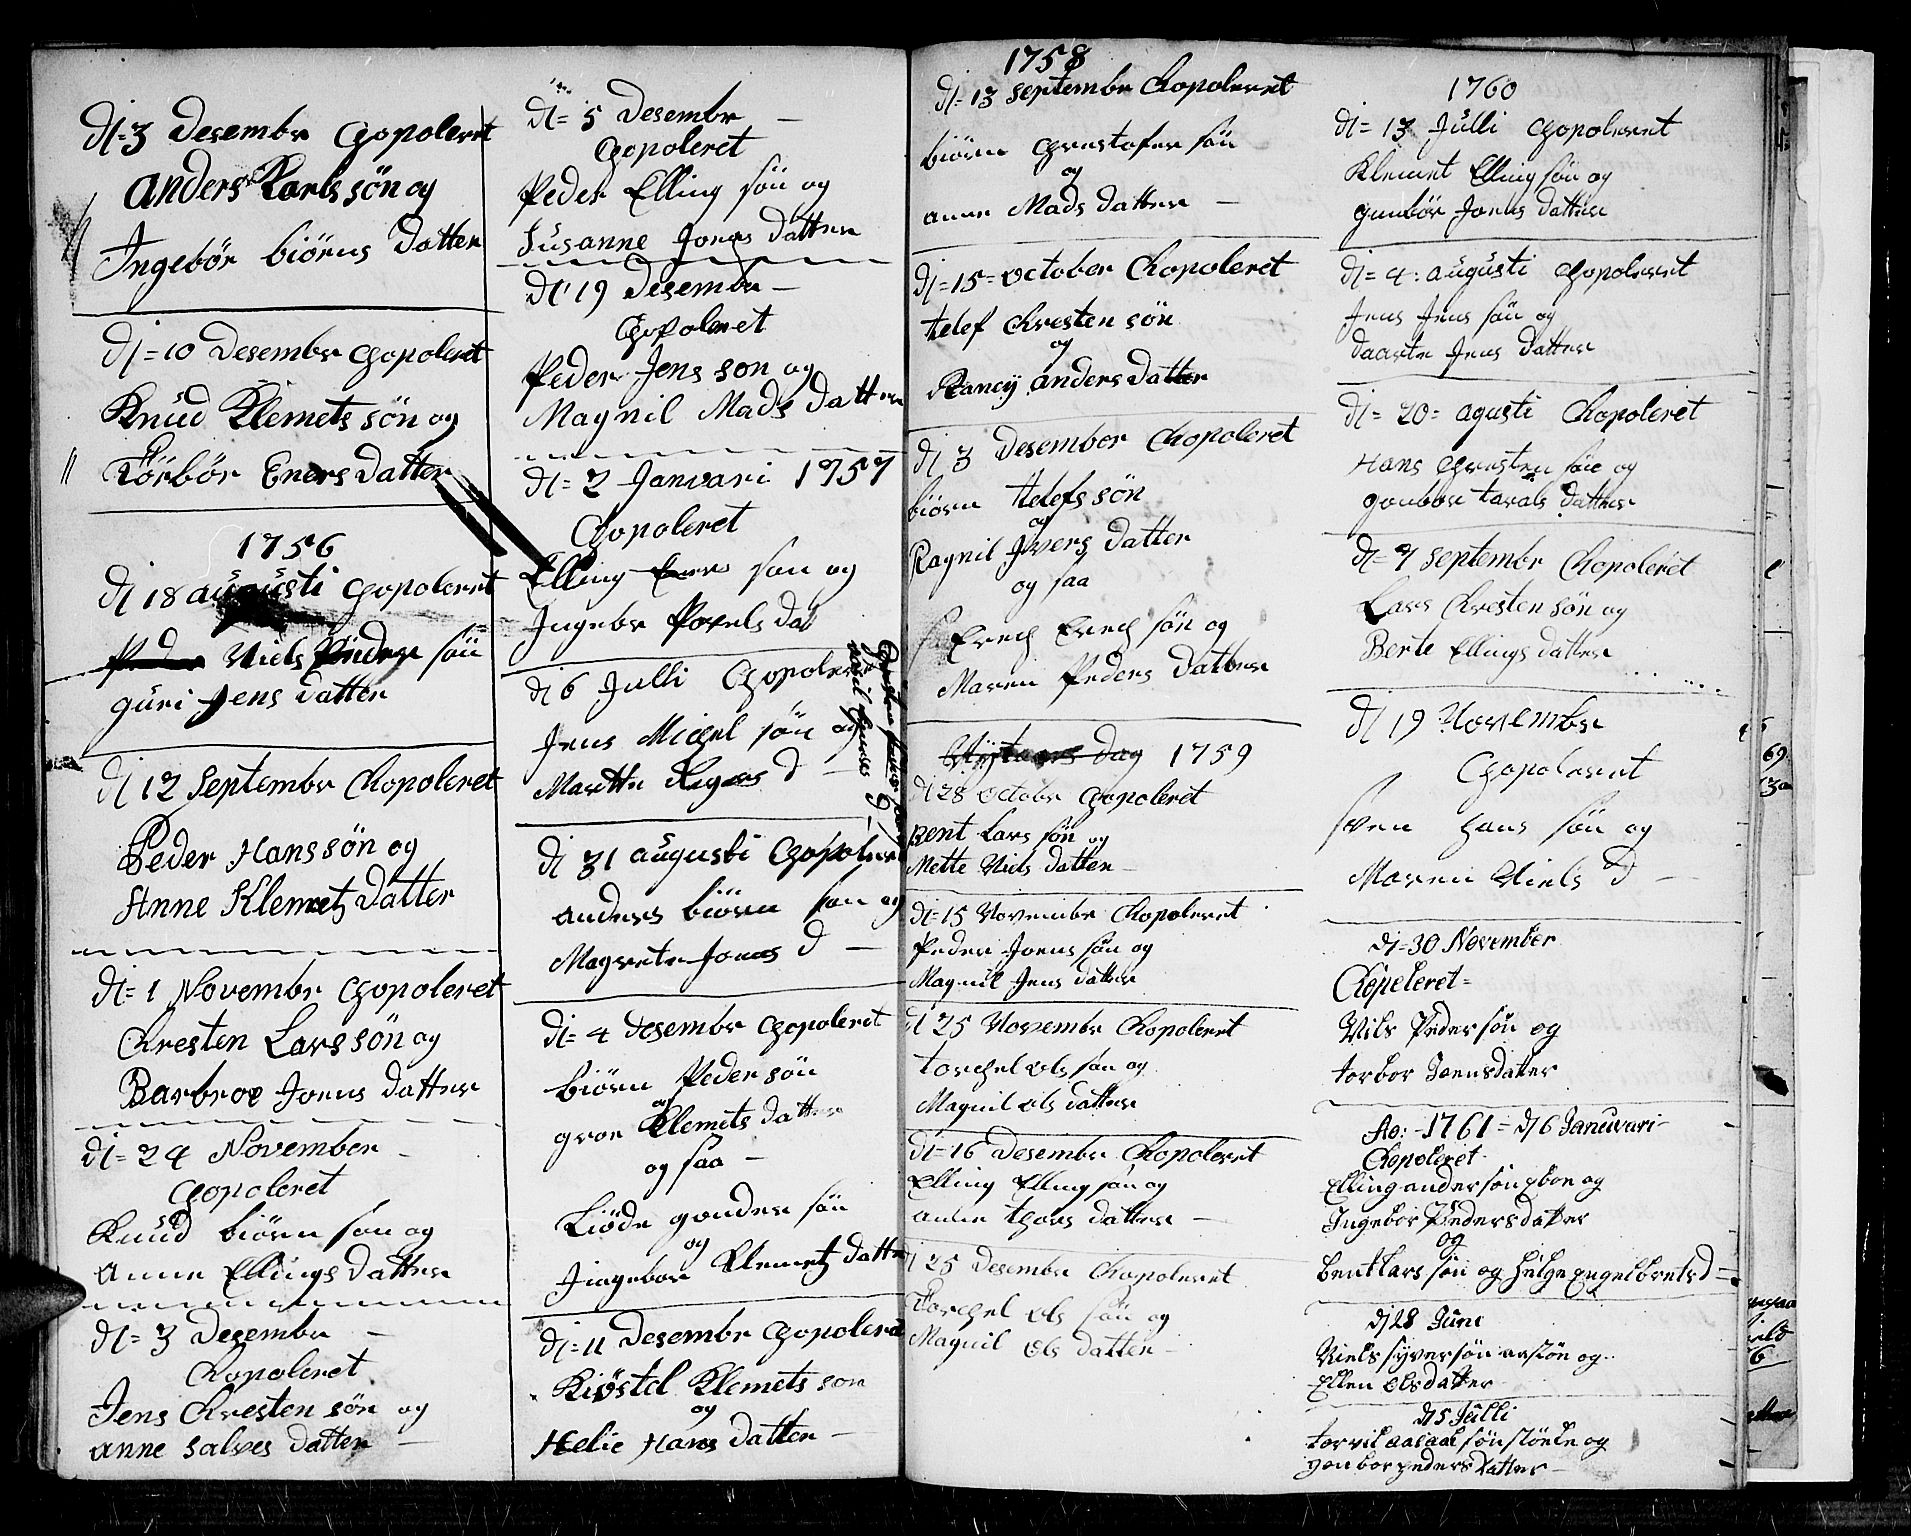 dj=3 Desembr Chopoleret
anders Karls søn og
Ingebør biørns Datter
dj=10 Desembr Chopoleret
Knud Klemets søn og
Torbør Eners Datter
1756
dj 18 augusti Chopoleret
Niels Peders søn
guri Jens datter
dj 12 Septembr Chopoleret
Peder Hans søn og
Anne Klemetz Datter
dj=1 Novembr Chopoleret
Kresten Lars søn og
Barbroe Joens datter
dj=24 November
Chopoleret
Knud biørn søn og
anne Ellings datter
dj=3 Desembr
Chopoleret
Jens Kresten søn og
anne salves datter
dj=5 Desembr
Chopoleret
Peder Elling søn og
Susanne Jonas datter
dj 19 Desembr
Chopoleret
Peder Jens son og
Magnil Mads datter
dj=2 Janvari 1757
Chopoleret
Elling søn og
Ingebr Povels dat
dj 6 Julli Chopoler
Jens Michel søn og
Martte D
dj 31 augusti Chopoler
anders biørn søn og
Magrete Jonas D
dj=4 Desembr Chopoleret
biørn Peder søn
og
groe Klemets datter
og saa
Liøde gonder søn
og
Jngebor Klemetz datte
dj=11 Desembr Chopolere
Kiøstel Klemets son
og
Helie Hans datter
1758
dj=13 septembr Chopoleret
biørn Chrestofer søn
og
anne Mads datter
dj=15=october Chopoleret
telef Kresten søn
og
Rancy anders datter
dj 3 Desember Chopoleret
biørn telefs søn
og
Ragnil Jvers datter
og saa
Erech Erech søn og
Maren Peders datter
dag 1759
dj 28 octobr Chopoleret
Bent Lars søn og
Mette Niels datter
dj=15 Novembr Chopoleret
Peder Joens søn og
Magnil Jens datter
d 25 Novembr Chopoleret
torchel ols søn og
Magnil ols datter
dj=16 Desembr Chopoleret
Elling Elling søn og
anne thors datter
j 25 Desembr Chopoleret
Torchel ols søn og
Magnil ols datter
1760
dj=13 Julli Chopoleret
Klemet Elling søn og
gunbør Joens datter
dj=4: augusti Chopoleret
Jens Jens søn og
daarte Jens datter
dj=20= agusti Chopoleret
Hans Chresten søn og
gonbor tarals datter
dj=7 septembr Chopoleret
Lars Kresten søn og
Berte Ellings datter
dj 19 Novembr
Chopoleret
sven hans søn og
Maren Niels D
dj=30 November
Chopeleret=
Nils Peder søn og
torbor Joensdatter
Ao:-1761=dj 6 Januvari-
Chopoleret
Elling ander søn og
Ingebor Pedersdatter
og
bent lars søn og helge engelbretsd=
dj 28 Juni
Niels syver søn og
Ellen olsdatter
dj 5 Julli
søn og
gonbor peders datter